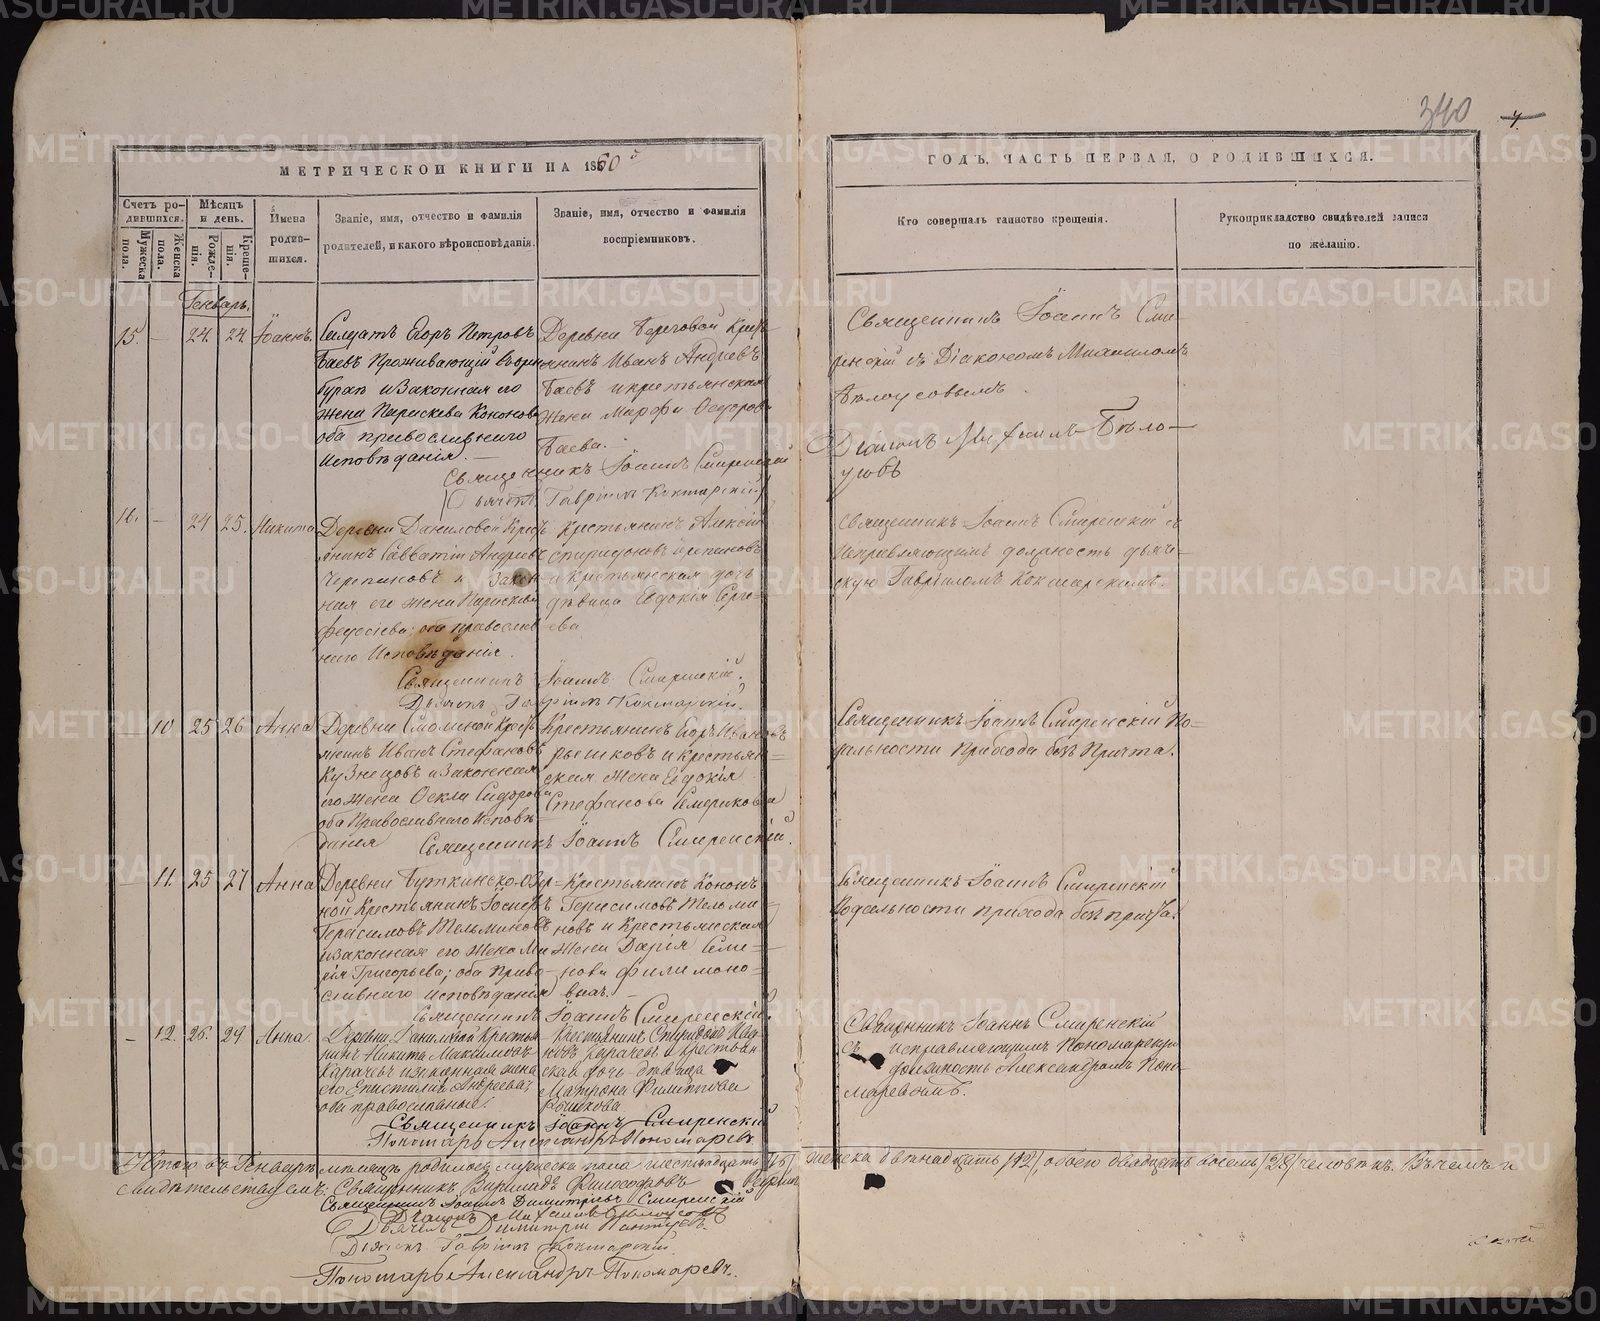 340
4.
МЕТРИЧЕСКОЙ КНИГИ НА 1860й
ГОДЪ, ЧАСТЬ ПЕРВАЯ, О РОДИВШИХСЯ.
Счетъ родившихся.
Мужеска пола.
Женска пола.
Мѣсяцъ и день.
Рожденія.
Крещенія.
Имена родившихся.
Званіе, имя, отчество и фамилія
родителей, и какого вѣроисповѣданія.
Званіе, имя, отчество и фамилія
воспріемниковъ.
Кто совершалъ таинство крещенія.
Рукоприкладство свидѣтелей записи
по желанію.
Генварь.
15. — 24. 24. Іоаннъ.
Солдатъ Егоръ Петровъ
Баевъ Проживающій
и Законная его
жена Параскева Кононова
оба православнаго
Исповѣданія. —
Деревни Береговой Кресть
янинъ Иванъ Андреевъ
Баевъ и крестьянская
Жена Марфа Ѳедорова
Баева.
Священникъ Іоаннъ Сми
ренскій съ Діакономъ Михаиломъ
Бѣлоусовымъ.
Діаконъ Михаилъ Бѣло—
усовъ
Священникъ Іоаннъ Смиренскій
Дьячекъ Гавріилъ Кокшарскій
16. — 24 25. Никита
Деревни Даниловой Кресть
янинъ Савватій Андреевъ
Черепановъ и Закон
ная его жена Параскева
оба православ
наго Исповѣданія.
Крестьянинъ Алексій
Спиридоновъ Черепановъ
и Крестьянская дочь
дѣвица Евдокія Серге—
ева
Священникъ Іоаннъ Смиренскій съ
Исправляющимъ должность дьяче—
скую Гавріиломъ Кокшарскимъ.
Священникъ Іоаннъ Смиренскій.
Дьячекъ Гавріилъ Кокшарскій.
— 10 25 26 Анна
Деревни Кресть
янинъ Иванъ Стефановъ
Кузнецовъ и Законная
его Жена Ѳекла Сидорова
оба Православнаго Исповѣ—
данія
Крестьянинъ Егоръ Ивановъ
и Крестьян=
ская Жена Евдокія
Стефанова Семерикова
Священникъ Іоаннъ Смиренскій По
дальности Прихода безъ Причта.
Священникъ Іоаннъ Смиренскій.
— 11. 25 27 Анна
Деревни Буткинско-Озер=
ной Крестьянинъ Іосифъ
Герасимовъ Тельминовъ
и законная его Жена Ма
рія Григорьева; оба Право—
славнаго Исповѣданія
Крестьянинъ Кононъ
Герасимовъ Тельми
новъ и Крестьянская
Жена Дарія Симе—
нова Филимоно=
выхъ.
Священникъ Іоаннъ Смиренскій
По дальности прихода безъ причта.
Священникъ Іоаннъ Смиренскій.
— 12. 26. 29 Анна.
Деревни Даниловой Крестья
нинъ Никита Максимовъ
Карачевъ и законная жена
его Епистимія Андреева;
оба православные.
Крестьянинъ Спиридонъ
Карачевъ и крестьян
ская дочь дѣвица
Матрона Филиппова
Священникъ Іоаннъ Смиренскій
съ исправляющимъ Пономарскую
должность Александромъ Поно
маревымъ.
Священникъ Іоаннъ Смиренскій
Пономарь Александръ Пономаревъ
Итого въ Генварѣ мѣсяцѣ родилось мужеска пола шестнадцать /16/ женска двѣнадцать /12/, обоего двадцать восемь /28/ человѣкъ. Въ чемъ и
свидѣтельствуемъ: Священникъ Философовъ
Священникъ Іоаннъ Димитріевъ Смиренскій
Діаконъ Михаилъ Бѣлоусовъ
Дьячекъ Димитрій
Дьячекъ Гавріилъ Кокшарскій
Пономарь Александръ Пономаревъ.
METRIKI.GASO-URAL.RU